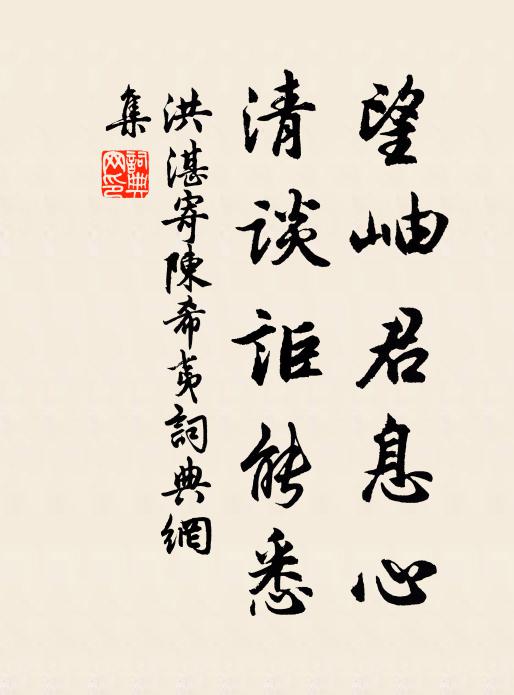 望岫君息心
清談詎能悉
洪湛寄陳希夷詞典網
集
詞典
网印